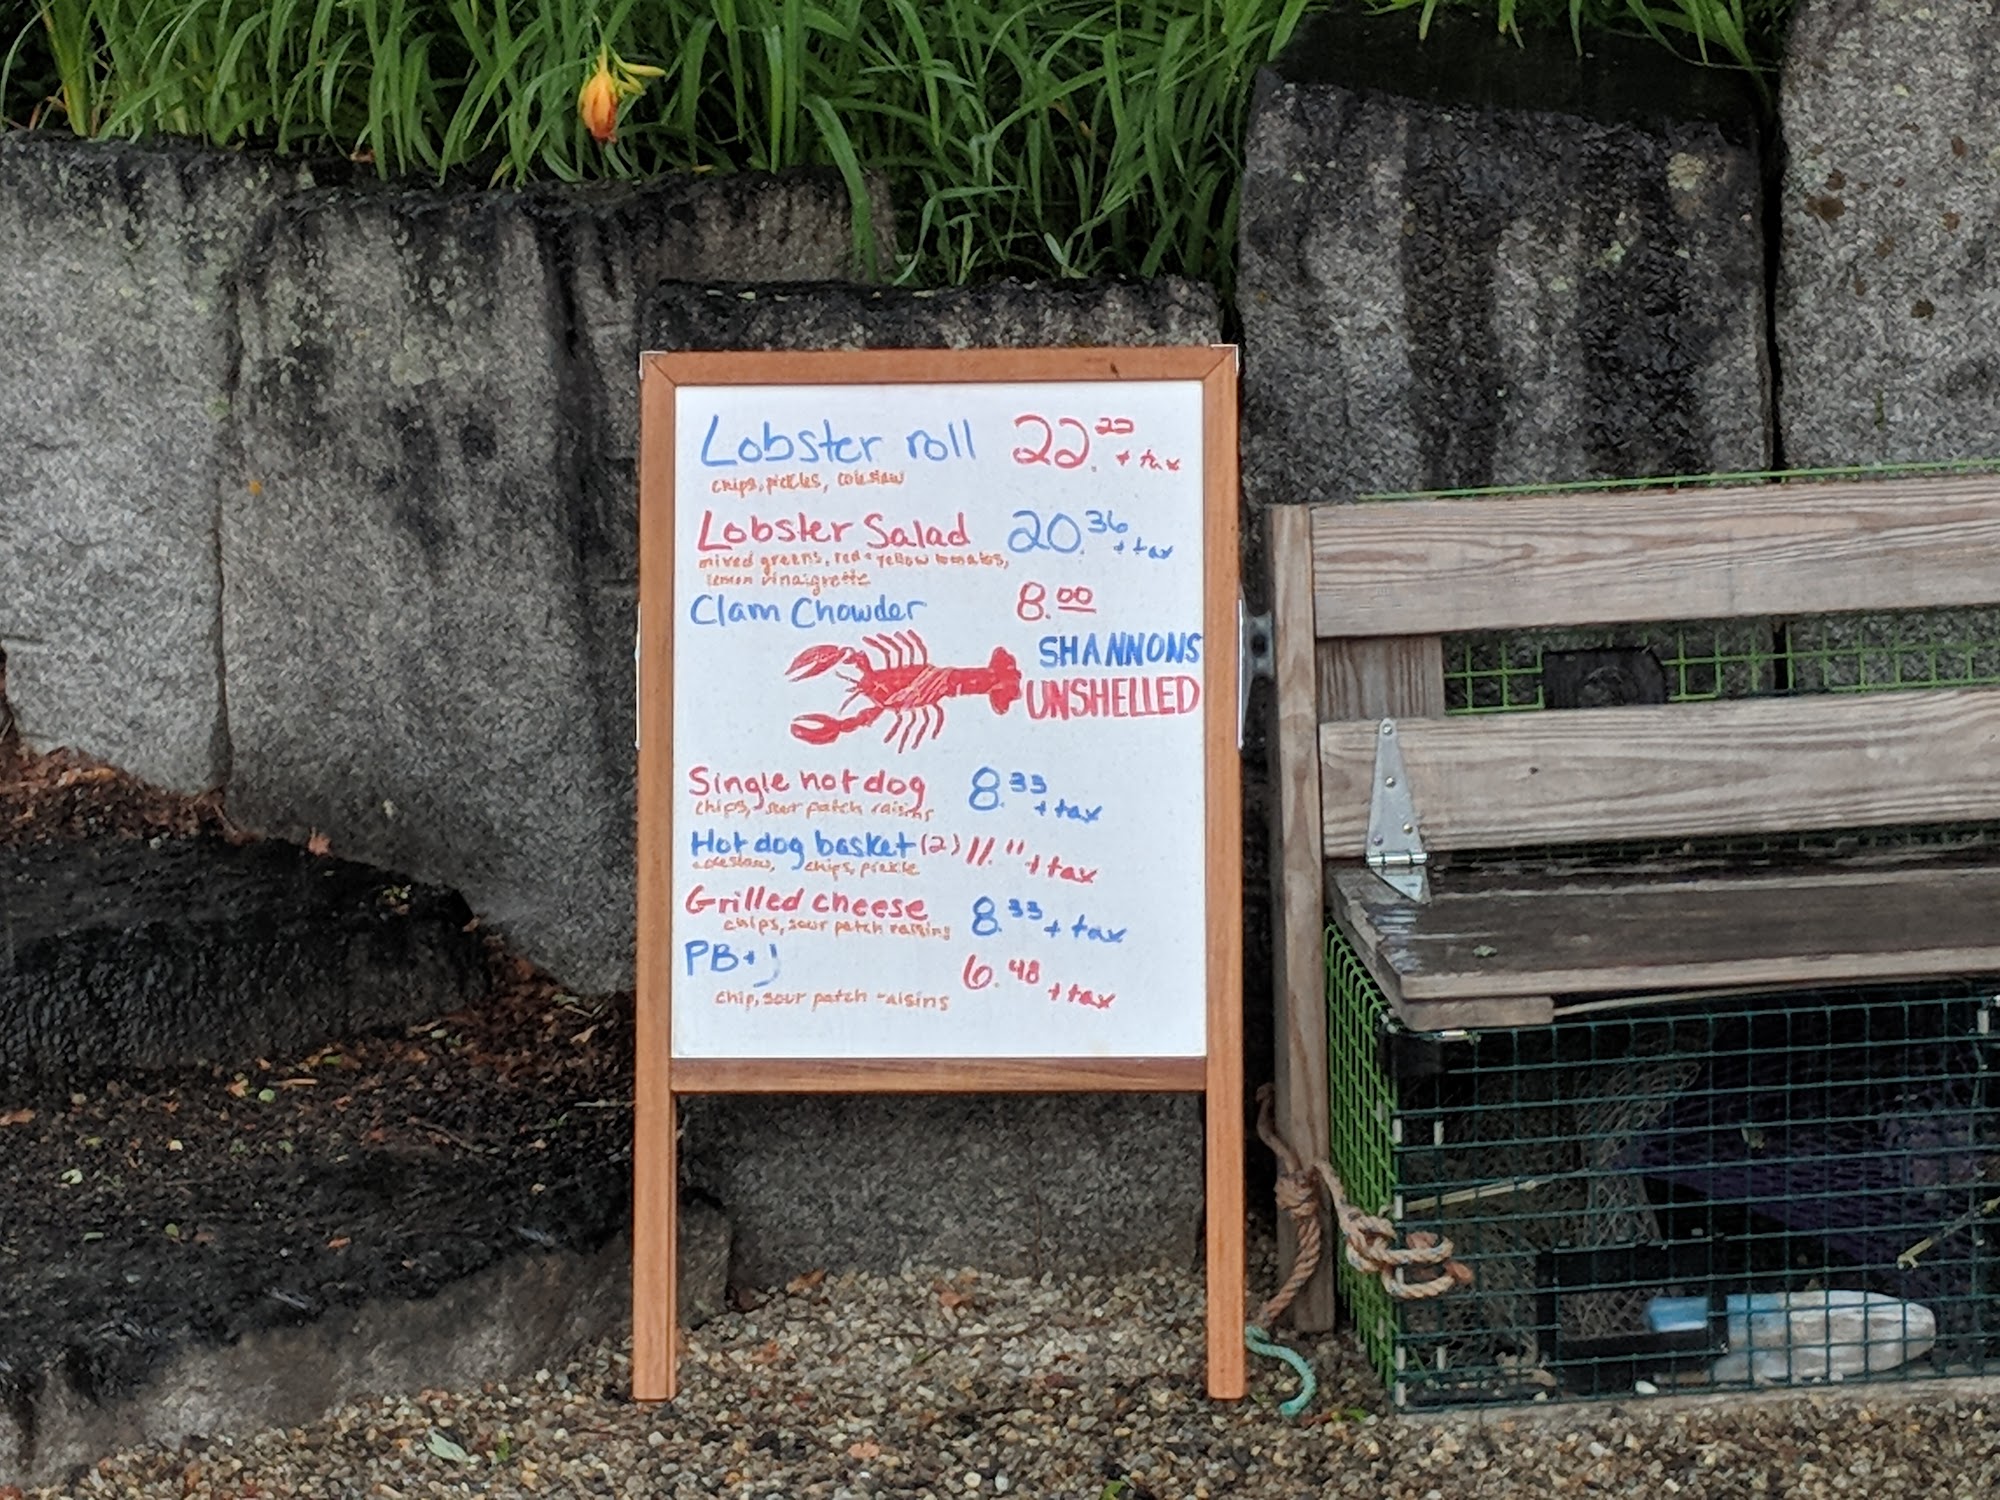 Lobster roll 22.22 + tax
chips, pickles, coleslaw
Lobster Salad 20.36 + tax
mixed greens, red + yellow tomatos,
lemon vinaigrette
Clam Chowder 8.00
SHANNONS
UNSHELLED
Single hot dog 8.33 + tax
chips, sour patch raisins
Hot dog basket (2) 11.11 + tax
coleslaw, chips, pickle
Grilled cheese 8.33 + tax
chips, sour patch raisins
PB+J 6.48 + tax
chip, sour patch raisins